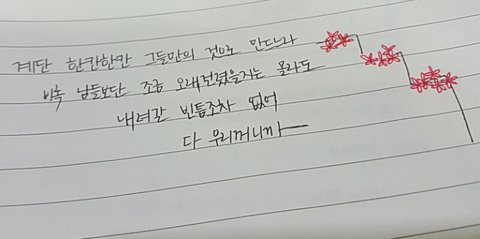 계단 한칸한칸 그들만의 것으로 만드느라
비록 남들보단 조금 오래걸렸을지는 몰라도
내려갈 빈틈조차 없어
다 우리꺼니까